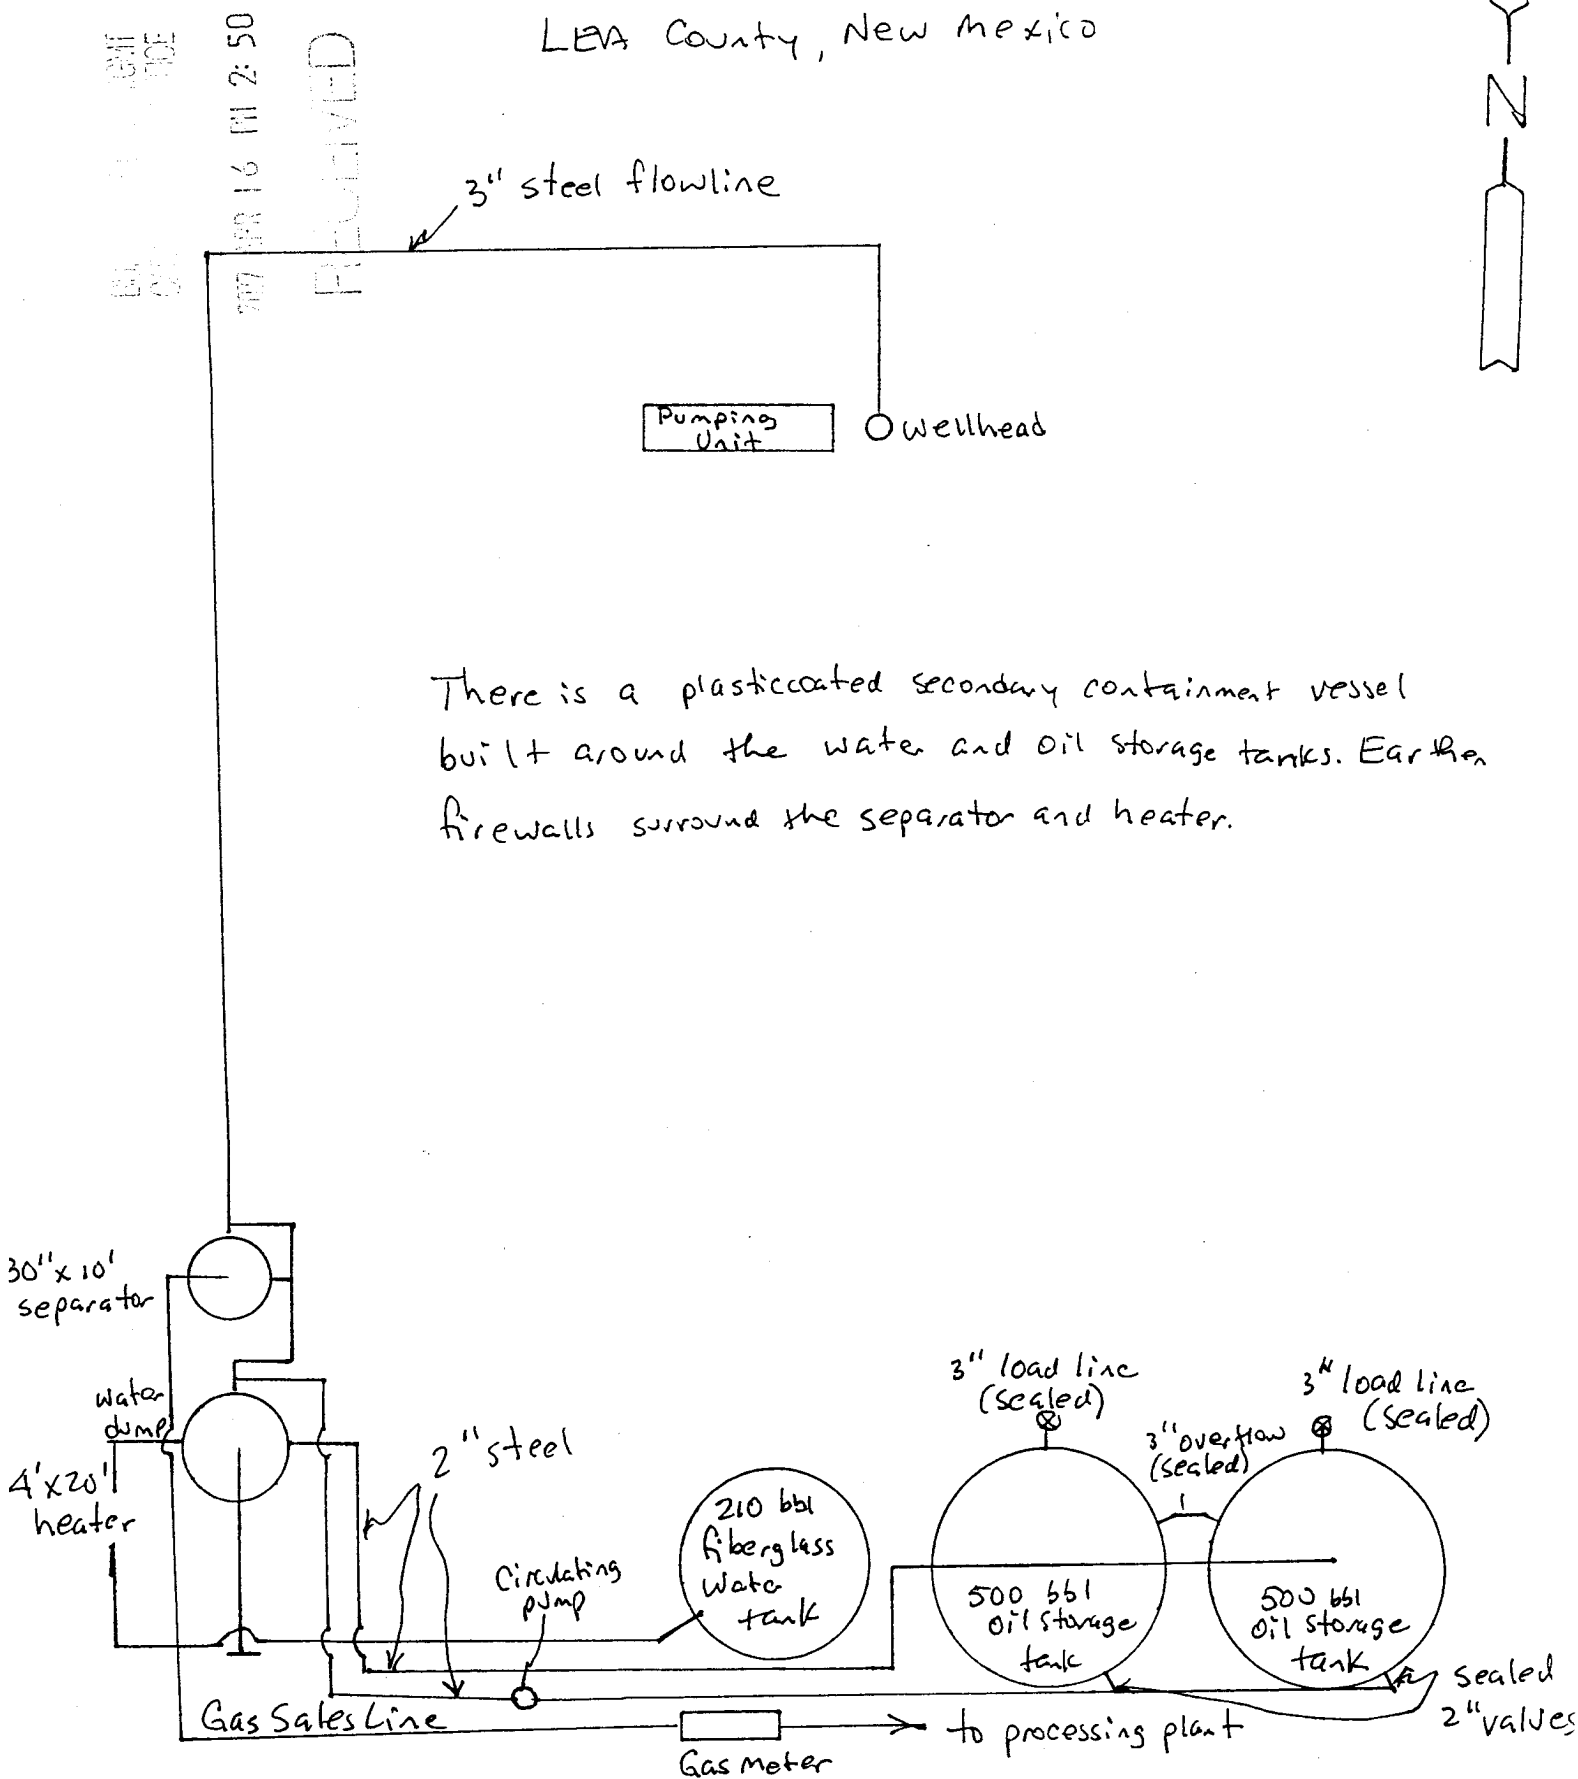 LEA County, New Mexico
2:50
RECEIVED
N
3" steel flowline
Pumping
Unit
wellhead
There is a plasticcoated secondary containment vessel
built around the water and oil storage tanks. Earthen
firewalls surround the separator and heater.
30" x 10'
separator
water
dump
4' x 20'
heater
2" steel
Circulating
pump
210 bbl
fiberglass
Water
tank
3" load line
(sealed)
3" overflow
(sealed)
3" load line
(sealed)
500 bbl
Oil Storage
tank
500 bbl
Oil Storage
tank
sealed
2" valves
Gas Sales Line
Gas Meter
to processing plant